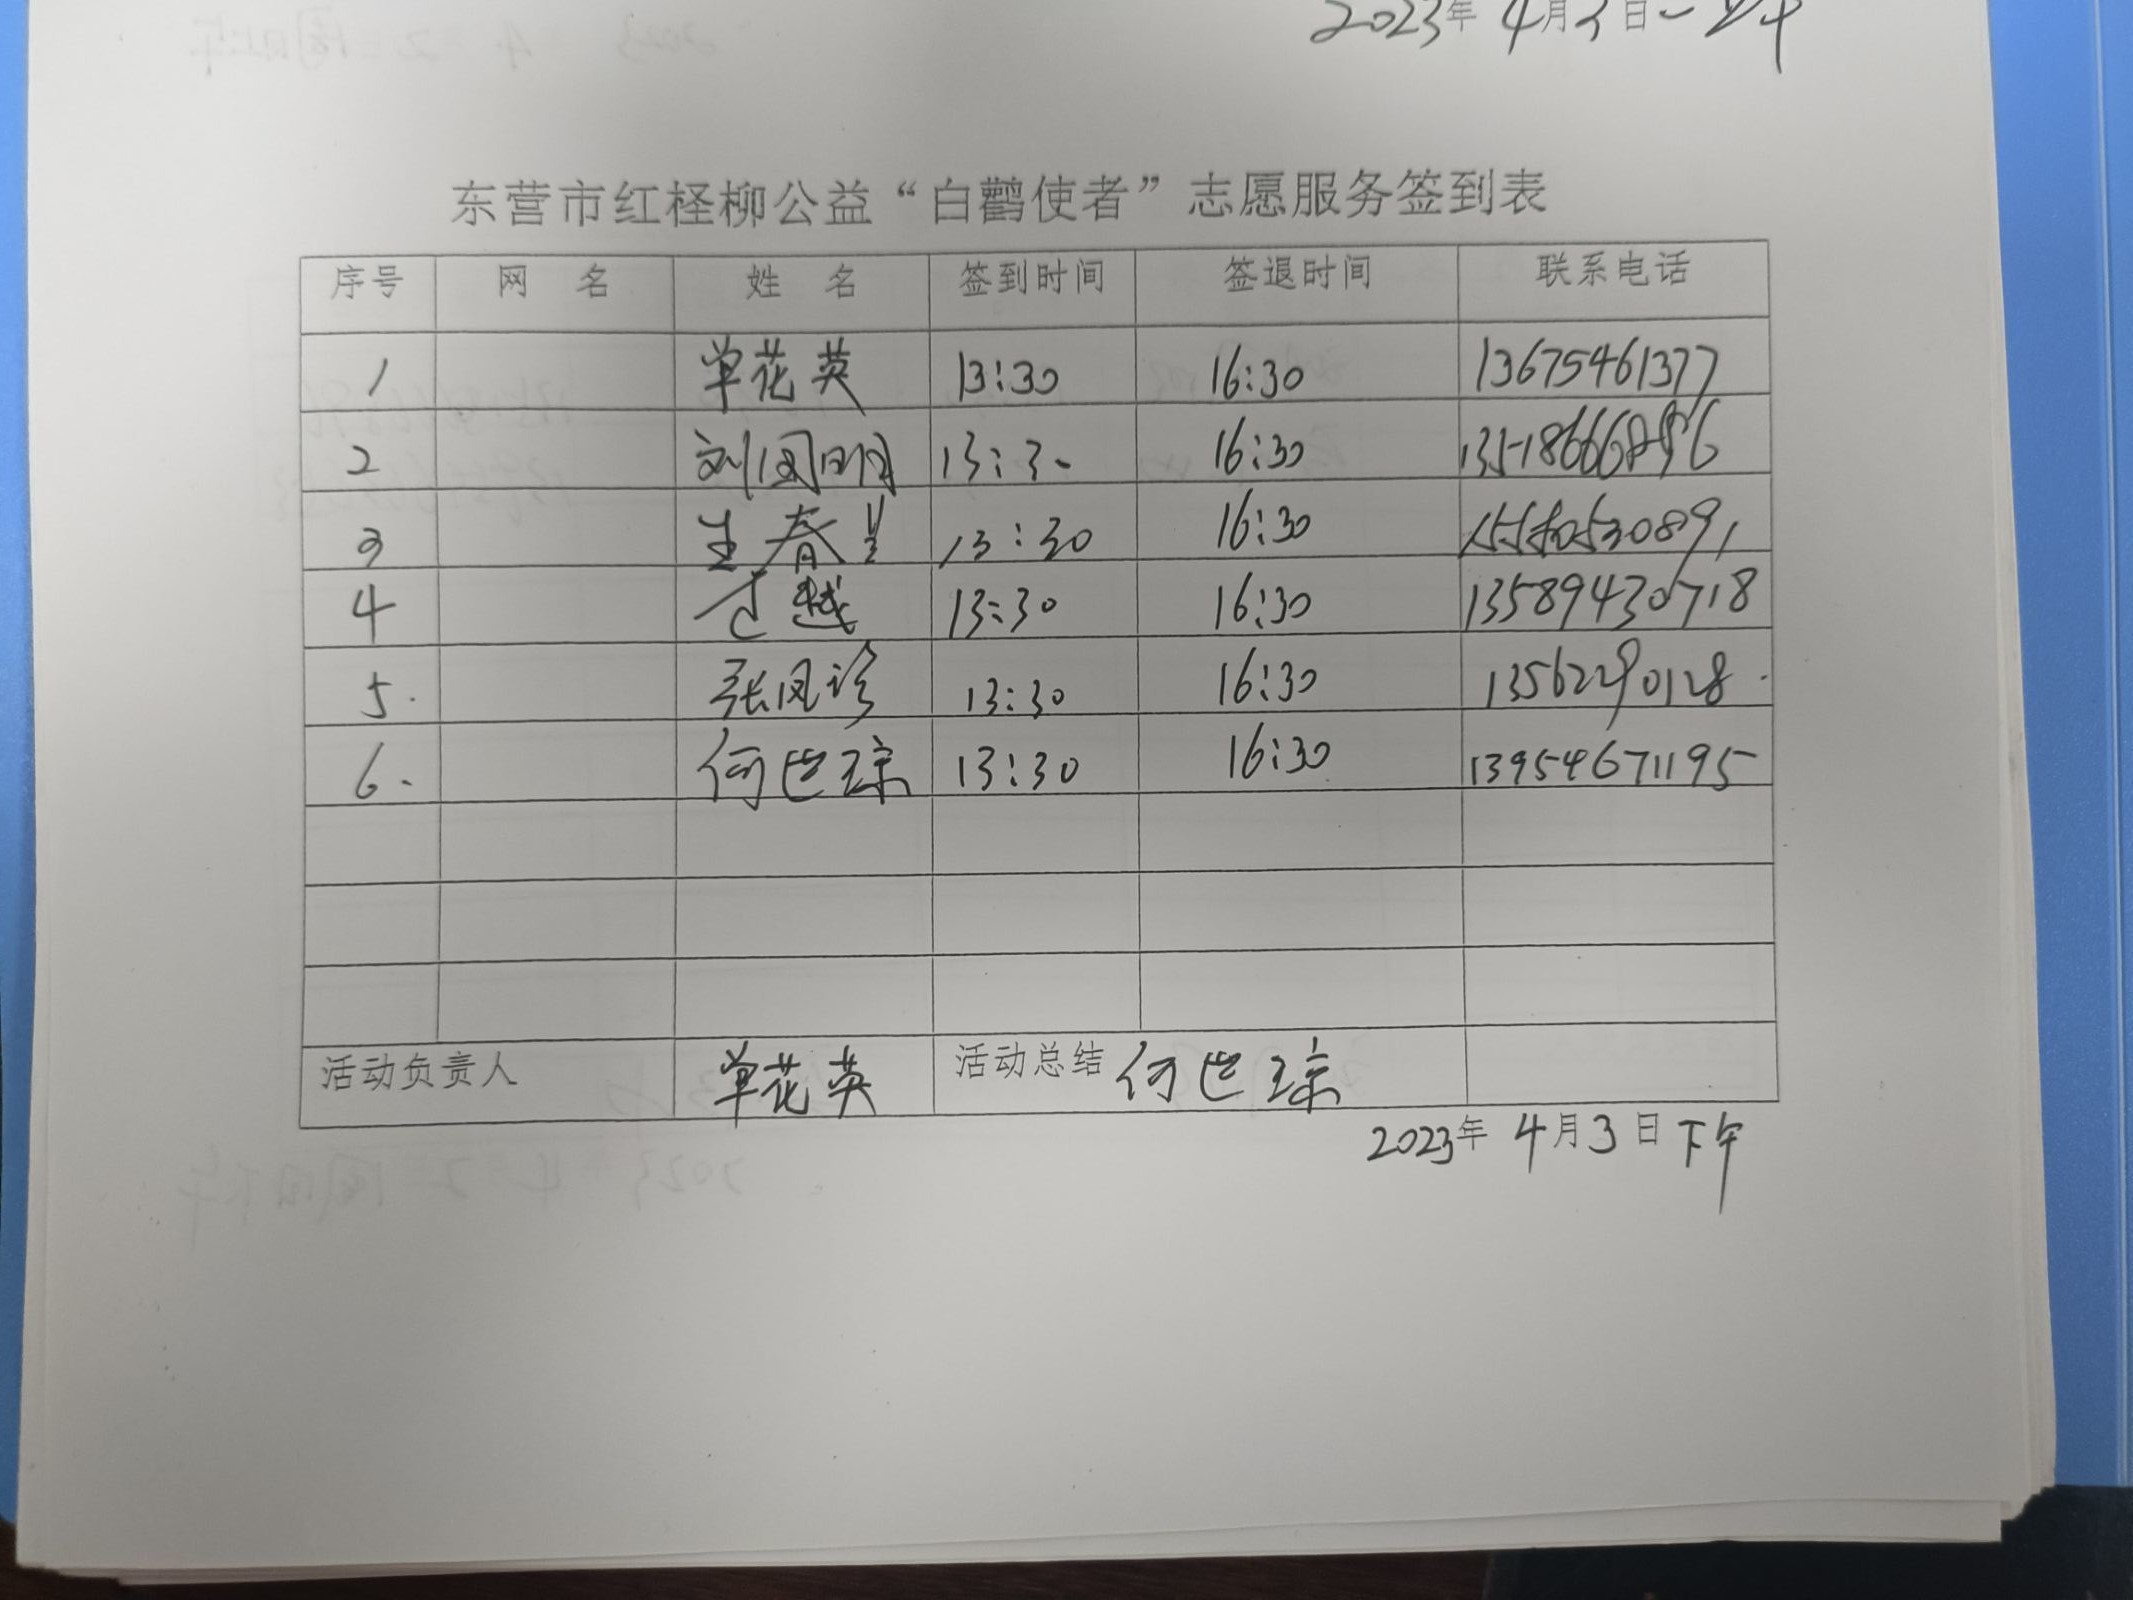 2023年 4月3日
东营市红柽柳公益“白鹳使者”志愿服务签到表
序号 网 名 姓 名 签到时间 签退时间 联系电话
1 单花英 13:30 16:30 13675461377
2 刘国明 13:30 16:30
3 13:30 16:30
4 越 13:30 16:30 13589430718
5. 张凤珍 13:30 16:30 13562290128.
6. 何世琼 13:30 16:30 13954671195
活动负责人 单花英 活动总结 何世琼
2023年 4月3日 下午